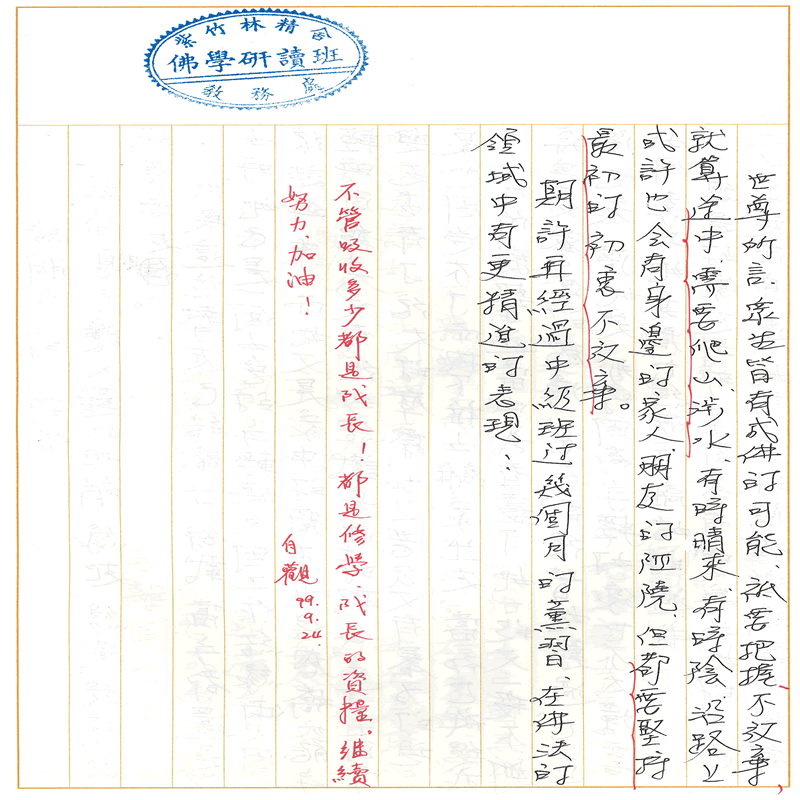 紫竹林精舍
佛學研讀班
教務處
世尊所言、眾生皆有成佛的可能、祇要把握、不放棄，
就算途中、需要爬山、涉水、有時晴來、有時陰、沿路上
或許也会有身邊的家人、朋友的阻撓、但都要堅持
最初的初衷不放棄。
期許再經過中級班这幾個月的薰習、在佛法的
領域中有更精進的表現：
不管吸收多少都是成長！都是修學、成長的資糧。继續
努力、加油！
自觀
99.
9.
24.